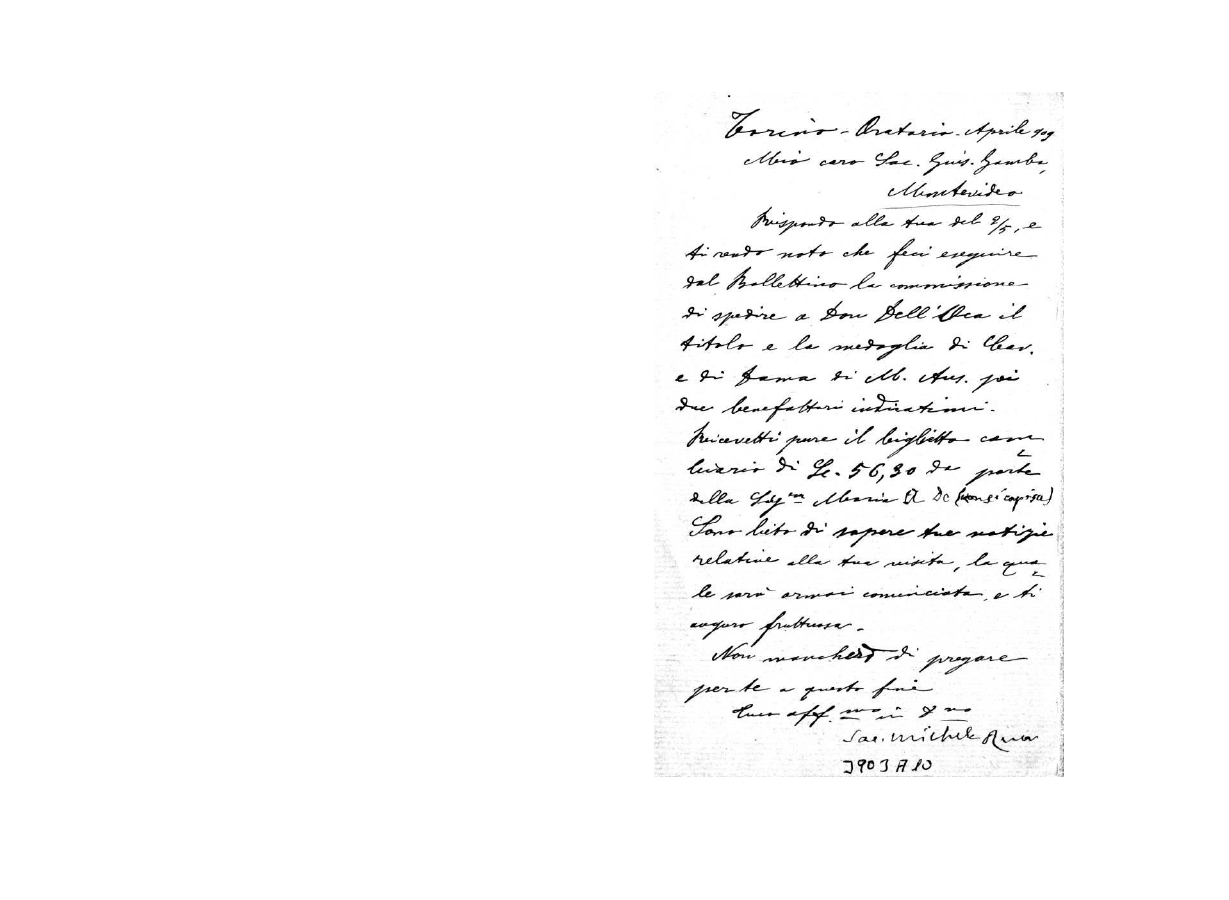 Torino - Oratorio - Aprile 909
Mio caro Sac. Gius. Gamba,
Montevideo
Rispondo alla tua del 9/5, e
ti rendo noto che feci eseguire
dal Bollettino la commissione
di spedire a Don Dell'Oca il
titolo e la medaglia di Cav.
e di Dama di M. Aus. pei
due benefattori indicatimi.
Ricevetti pure il biglietto cam
biario di Le. 56,30 da parte
della Sigra Maria A De (non si capisce)
Sono lieto di sapere tue notizie
relative alla tua visita, la qua
le sarà ormai cominciata, e ti
auguro fruttuosa.
Non mancherò di pregare
per te a questo fine
Tuo aff.mo in
Sac. Michele Rua
3903 A 10